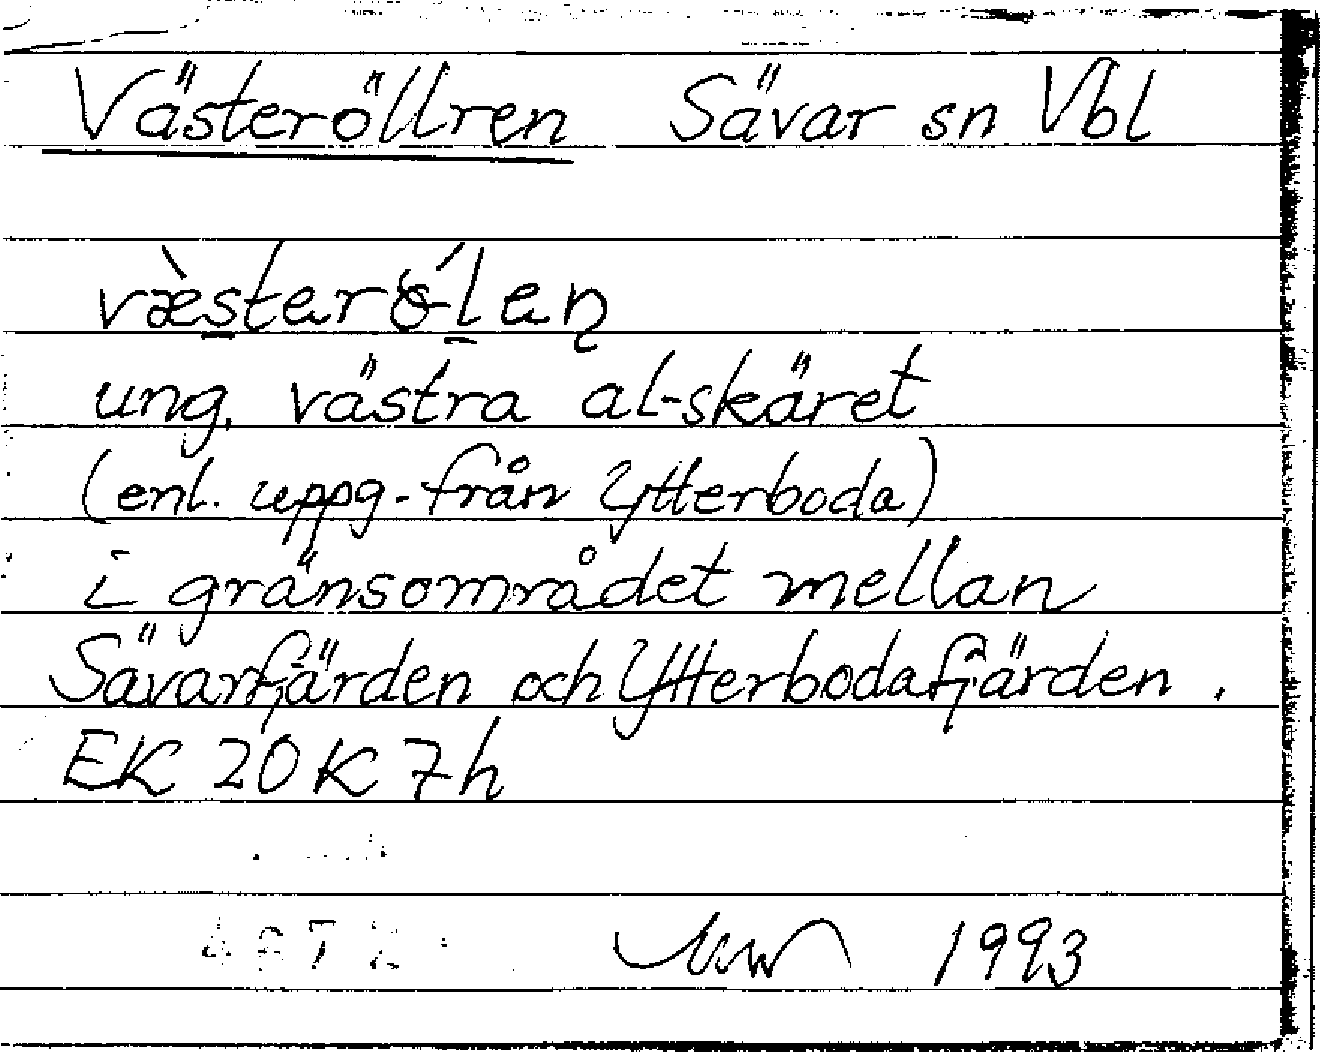 Västeröllren Sävar sn Vbl
væ̀sterǿlen̨
ung. västra al-skäret
(enl. uppg. från Ytterboda)
i gränsområdet mellan
Sävarfjärden och Ytterbodafjärden.
EK 20K 7h
1993